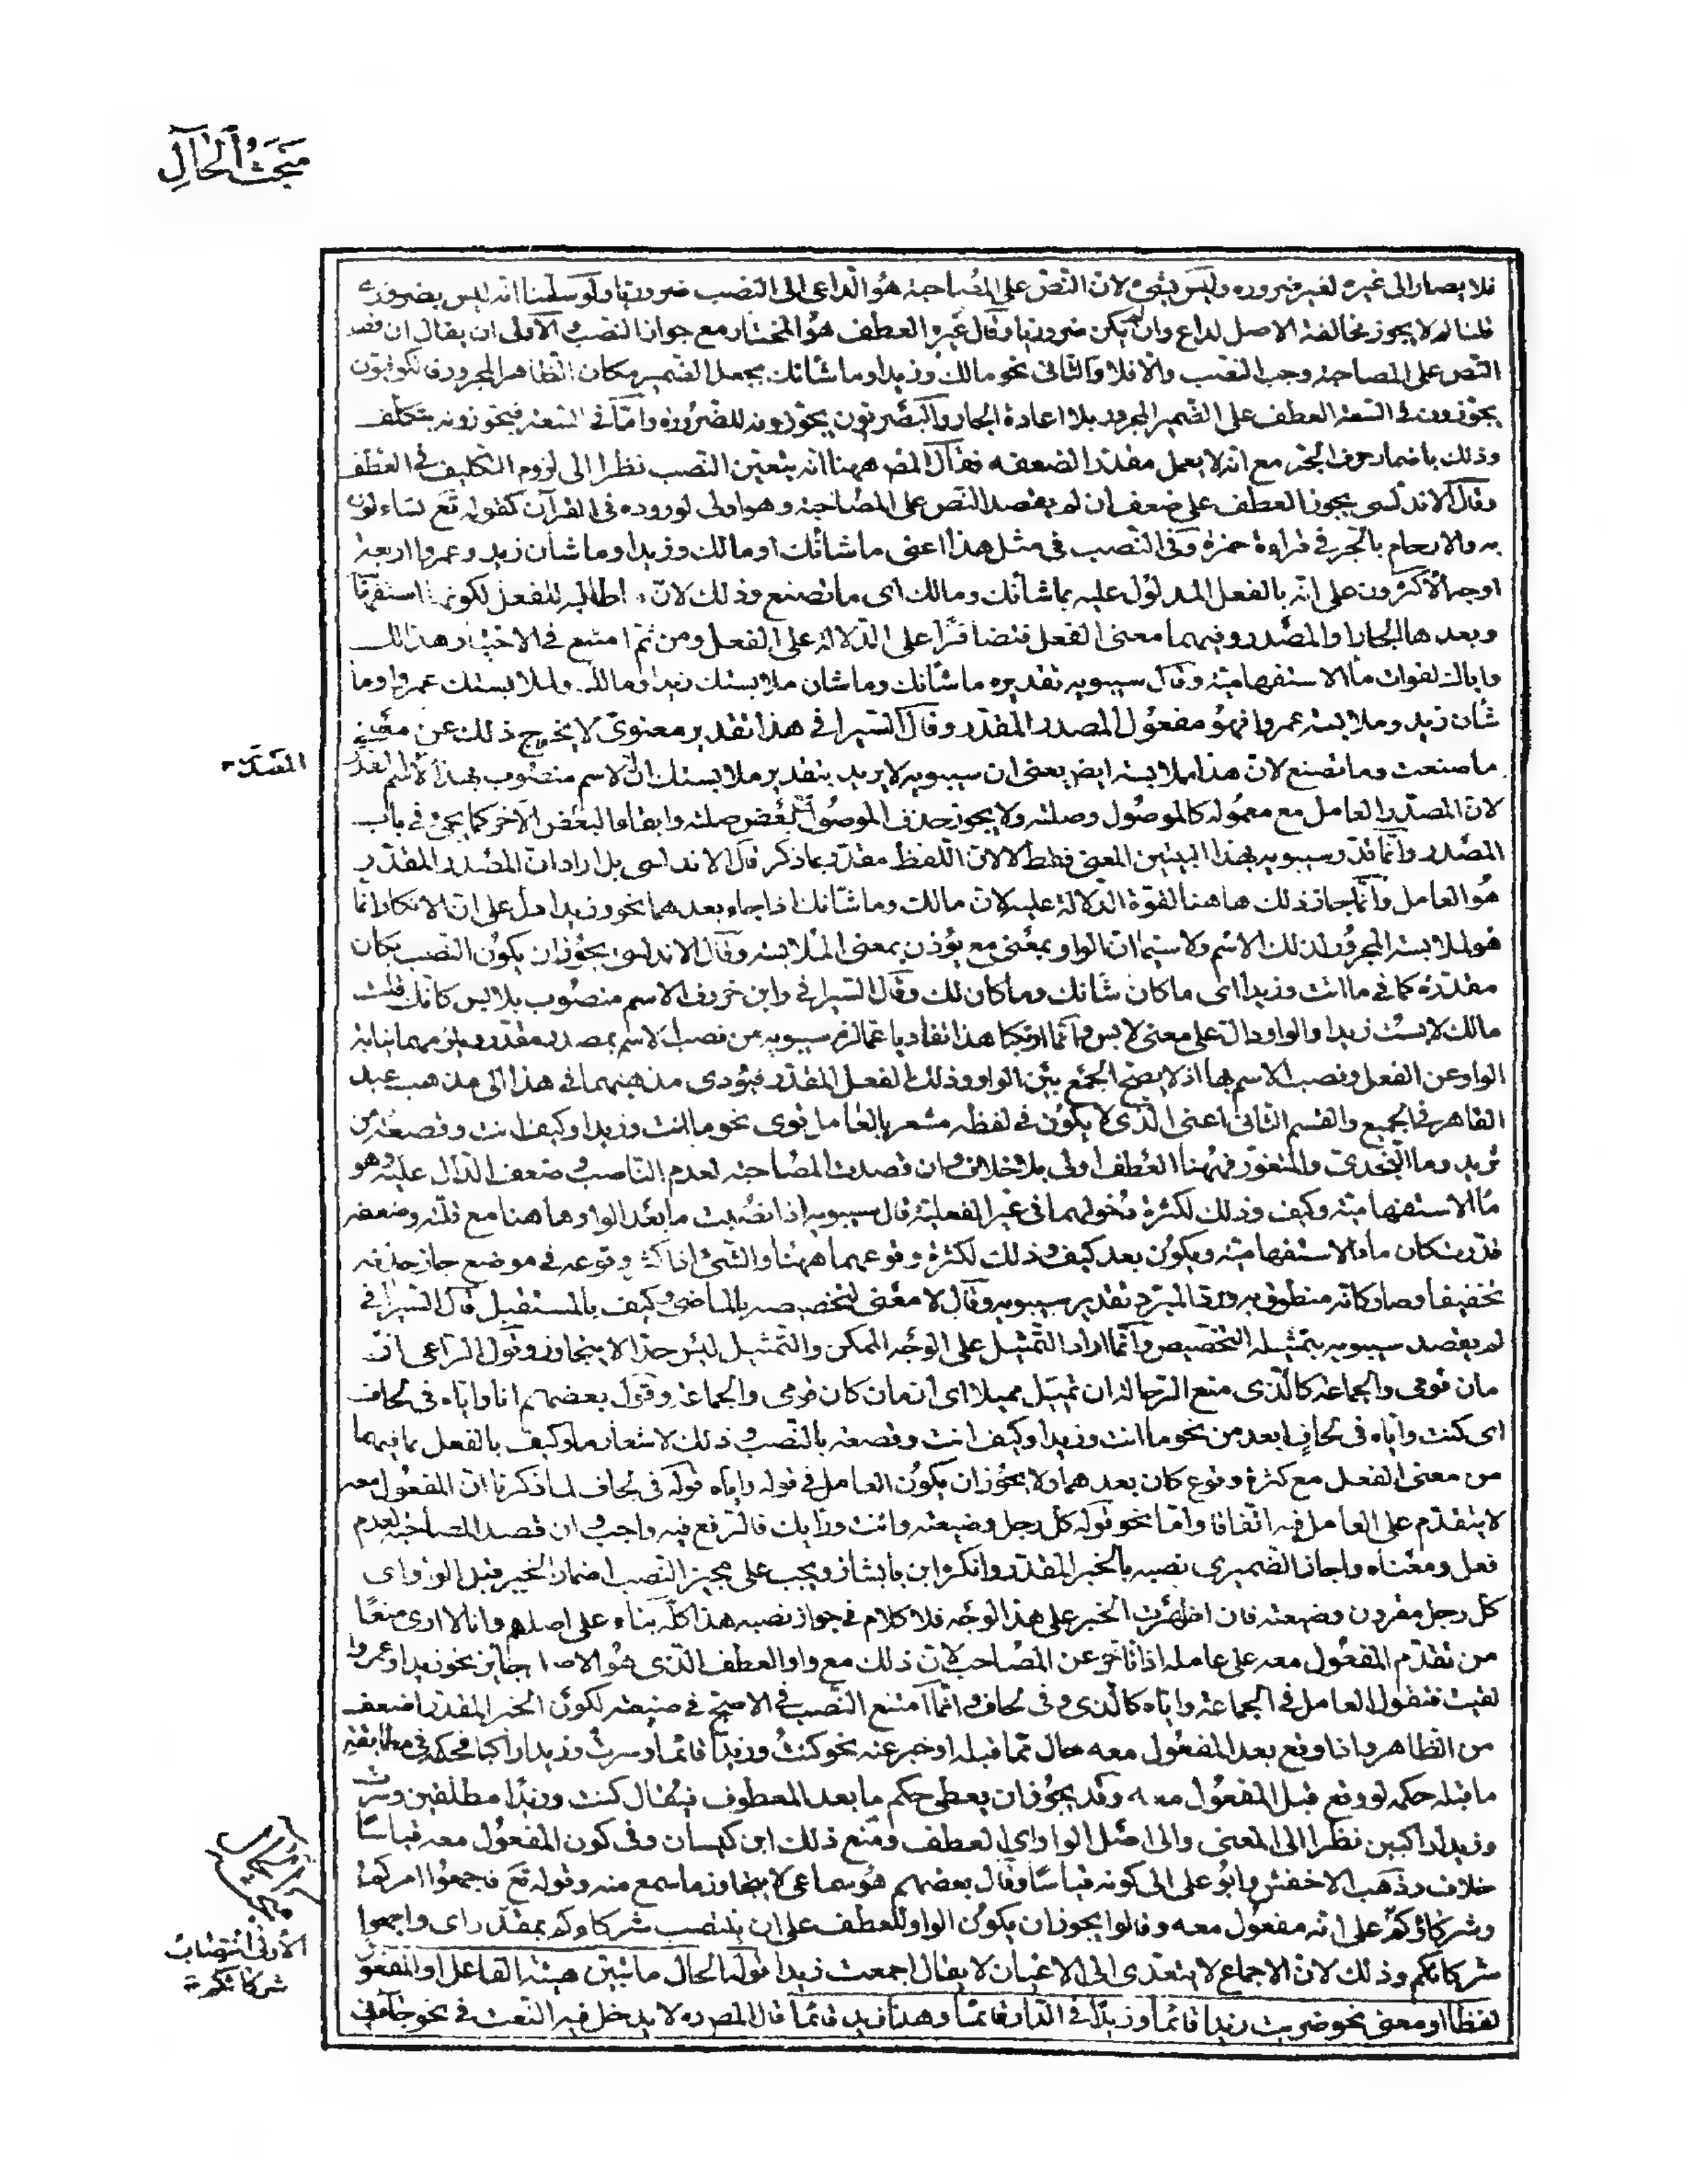 مَبحَثُ الحَالِ
فلا يصار الى غيره لغير ضروره وليس بشئ لان النص على المصاحبة هو الداعى الى النصب ضروريا ولو سلمنا انه ليس بضرورى
قلنا لم لا يجوز مخالفة الاصل لداع وان لم يكن ضروريا وقال غيره العطف هو المختار مع جواز النصب والاولى ان يقال ان قصد
النص على المصاحبة وجب النصب والا فلا والثانى نحو مالك وزيدا وما شانك بجعل الضمير مكان الظاهر المجرور فالكوفيون
يجوزون فى السعة العطف على الضمير المجرور بلا اعادة الجار والبصريون يجوزونه للضرورة واما فى السعة فيجوزونه بتكلف
وذلك باضمار حرف الجر مع انه لا يعمل مقدرا لضعفه فقال المص ههنا انه يتعين النصب نظرا الى لزوم التكليف فى العطف
وقال الاندلسى يجوز العطف على ضعف ان لم يقصد النص على المصاحبة وهو اولى لوروده فى القرآن كقوله تع تساءلون
به والارحام بالجر فى قراءة حمزة وفى النصب فى مثل هذا اعنى ما شانك او مالك وزيدا وما شان زيد وعمروا اربعة
اوجه الاكثرون على انه بالفعل المدلول عليه بما شانك ومالك اى ما تصنع وذلك لان ما طالبه للفعل لكونها استفهاما
وبعدها الجار او المصدر وفيهما معنى الفعل فتضافرا على الدلالة على الفعل ومن ثم امتنع فى الاختيار هذا لك
واباك لفوات ما الاستفهامية وقال سيبويه تقديره ما شانك وما شان ملابستك زيدا ومالك ولملابستك عمروا وما
شان زيد وملابسته عمروا فهو مفعول المصدر المقدر وقال السيرافى هذا تقدير معنوى لا يخرج ذلك عن معنى
ما صنعت وما تصنع لان هذا ملابسته ايض يعنى ان سيبويه لا يريد بتقدير ملابستك ان الاسم منصوب بهذا الاسم المقدر
لان المصدر العامل مع معموله كالموصول وصلته ولا يجوز حذف الموصول مع بعض صلته وابقاء البعض الآخر كما يجئ فى باب
المصدر وانما قدر سيبويه بهذا التبيين المعنى فقط لا لان اللفظ مقدر بما ذكر قال الاندلسى بل اراد ان المصدر المقدر
هو العامل وانما جاز ذلك هاهنا لقوة الدلالة عليه لان مالك وما شانك اذا جاء بعدهما نحو وزيدا دل على ان الانكار انما
هو لملابسة المجرور لذلك الاسم ولا سيما ان الواو بمعنى مع يؤذن بمعنى الملابسة وقال الاندلسى يجوز ان يكون النصب بكان
مقدرة كما فى ما انت وزيدا اى ما كان شانك وما كان لك وقال السيرافى وابن خروف الاسم منصوب بلابس كانك قلت
مالك لابست زيدا والواو دال على معنى لابس وانما ارتكبا هذا تفاديا عما لزم سيبويه من نصب الاسم بمصدر مقدر ويلزمهما نيابة
الواو عن الفعل ونصب الاسم بها اذ لا يصح الجمع بين الواو وذلك الفعل المقدر فيؤدى مذهبهما فى هذا الى مذهب عبد
القاهر فى الجميع والقسم الثانى اعنى الذى لا يكون فى لفظه مشعر بالعامل قوى نحو ما انت وزيدا وكيف انت وقصعة من
ثريد وما النجدى والمتغور فههنا العطف اولى بلا خلاف وان قصدت المصاحبة لعدم الناصب وضعف الدال عليه وهو
ما الاستفهامية وكيف وذلك لكثرة دخولهما فى غير الفعلية قال سيبويه اذا نصبت ما بعد الواو هاهنا مع قلته وضعفه
قدرت كان بعد ما الاستفهامية ويكون بعد كيف وذلك لكثرة وقوعهما ههنا والشئ اذا كثر وقوعه فى موضع جاز حذفه
تخفيفا وصار كانه منطوق به ورد المبرد تقدير سيبويه وقال لا معنى لتخصيصه بالماضى وكيف بالمستقبل قال السيرافى
لم يقصد سيبويه بتمثيله التخصيص وانما اراد التمثيل على الوجه الممكن والتمثيل ليس حدا لا يتجاوز وقول الراعى ان
مان قومى والجماعة كالذى منع الرحالة ان تميل مميلا اى ازمان كان قومى والجماعة وقول بعضهم انا واياه فى لحاف
اى كنت واياه فى لحاف ابعد من نحو ما انت وزيدا وكيف انت وقصعة بالنصب وذلك لاشعار ما وكيف بالفعل بما فيهما
من معنى الفعل مع كثرة وقوع كان بعدهما ولا يجوز ان يكون العامل فى قوله واياه قوله فى لحاف لما ذكرنا ان المفعول معه
لا يتقدم على العامل فيه اتفاقا واما نحو قوله كل رجل وضيعته وانت ورايك فالرفع فيه واجب وان قصد المصاحبة لعدم
فعل ومعناه واجاز الضميرى نصبه بالخبر المقدر وانكر ابن بابشاذ ويجب على مجيز النصب اضمار الخبر قبل الواو اى
كل رجل مقرون وضيعته فان اظهرت الخبر على هذا الوجه فلا كلام فى جواز نصبه هذا كله بناء على اصلهم وانا لا ارى منعا
من تقدم المفعول معه على عامله اذا تاخر عن المصاحب لان ذلك مع واو العطف الذى هو الاصل جايز نحو زيدا وعمروا
لقيت فنقول العامل فى الجماعة واياه كالذى وفى لحاف وانما امتنع النصب فى الاصح فى ضيعته لكون الخبر المقدر اضعف
من الظاهر واذا وقع بعد المفعول معه حال مما قبله او خبر عنه نحو كنت وزيدا قائما وسرت وزيدا راكبا فحكمه فى مطابقة
ما قبله حكمه لو وقع قبل المفعول معه وقد يجوز ان يعطى حكم ما بعد المعطوف فيقال كنت وزيدا مطلقين وسرت
وزيدا راكبين نظرا الى المعنى والى اصل الواو اى العطف ومنع ذلك ابن كيسان وفى كون المفعول معه قياسا
خلاف وذهب الاخفش وابو على الى كونه قياسا وقال بعضهم هو سماعى لا يتجاوز ما سمع منه وقوله تع فاجمعوا امركم
وشركاؤكم على انه مفعول معه وقالوا يجوز ان يكون الواو للعطف على ان ينتصب شركاؤكم بمقدر اى واجمعوا
شركائكم وذلك لان الاجماع لا يتعدى الى الاعيان لا يقال اجمعت زيدا قوله الحال ما يبين هيئة الفاعل او المفعول
لفظا او معنى نحو ضربت زيدا قائما وزيد فى الدار قائما وهذا زيد قائما قال المص ره لا يدخل فيه النعت فى نحو جاءنى
المقدر
الاولى انتصاب
شركائكم